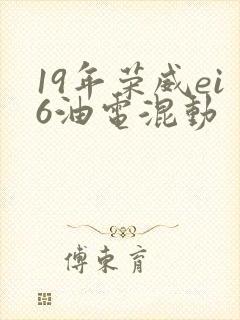 19年荣威ei
6油電混動
傅東育